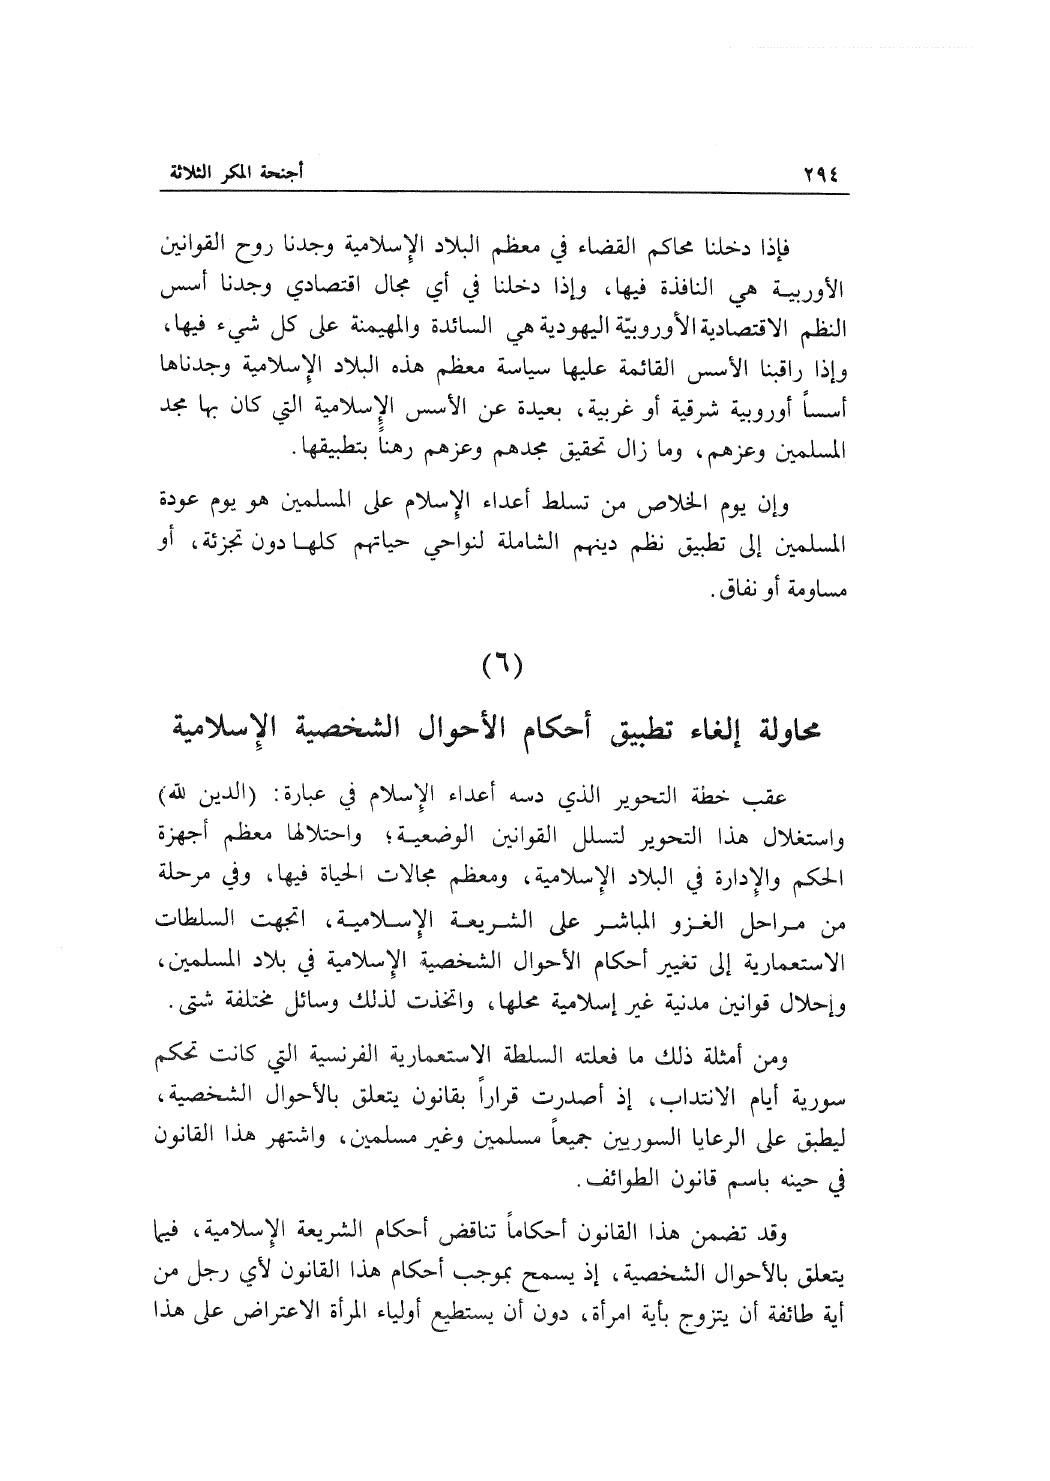 ٢٩٤ أجنحة المكر الثلاثة
فإذا دخلنا محاكم القضاء في معظم البلاد الإسلامية وجدنا روح القوانين
الأوربية هي النافذة فيها، وإذا دخلنا في أي مجال اقتصادي وجدنا أسس
النظم الاقتصادية الأوروبيّة اليهودية هي السائدة والمهيمنة على كل شيء فيها،
وإذا راقبنا الأسس القائمة عليها سياسة معظم هذه البلاد الإسلامية وجدناها
أسساً أوروبية شرقية أو غربية، بعيدة عن الأسس الإسلامية التي كان بها مجد
المسلمين وعزهم، وما زال تحقيق مجدهم وعزهم رهناً بتطبيقها.
وإن يوم الخلاص من تسلط أعداء الإسلام على المسلمين هو يوم عودة
المسلمين إلى تطبيق نظم دينهم الشاملة لنواحي حياتهم كلها دون تجزئة، أو
مساومة أو نفاق.
(٦)
محاولة إلغاء تطبيق أحكام الأحوال الشخصية الإسلامية
عقب خطة التحوير الذي دسه أعداء الإسلام في عبارة: (الدين لله)
واستغلال هذا التحوير لتسلل القوانين الوضعية؛ واحتلالها معظم أجهزة
الحكم والإدارة في البلاد الإسلامية، ومعظم مجالات الحياة فيها، وفي مرحلة
من مراحل الغزو المباشر على الشريعة الإسلامية، اتجهت السلطات
الاستعمارية إلى تغيير أحكام الأحوال الشخصية الإسلامية في بلاد المسلمين،
وإحلال قوانين مدنية غير إسلامية محلها، واتخذت لذلك وسائل مختلفة شتى.
ومن أمثلة ذلك ما فعلته السلطة الاستعمارية الفرنسية التي كانت تحكم
سورية أيام الانتداب، إذ أصدرت قراراً بقانون يتعلق بالأحوال الشخصية،
ليطبق على الرعايا السوريين جميعاً مسلمين وغير مسلمين، واشتهر هذا القانون
في حينه باسم قانون الطوائف.
وقد تضمن هذا القانون أحكاماً تناقض أحكام الشريعة الإسلامية، فيما
يتعلق بالأحوال الشخصية، إذ يسمح بموجب أحكام هذا القانون لأي رجل من
أية طائفة أن يتزوج بأية امرأة، دون أن يستطيع أولياء المرأة الاعتراض على هذا